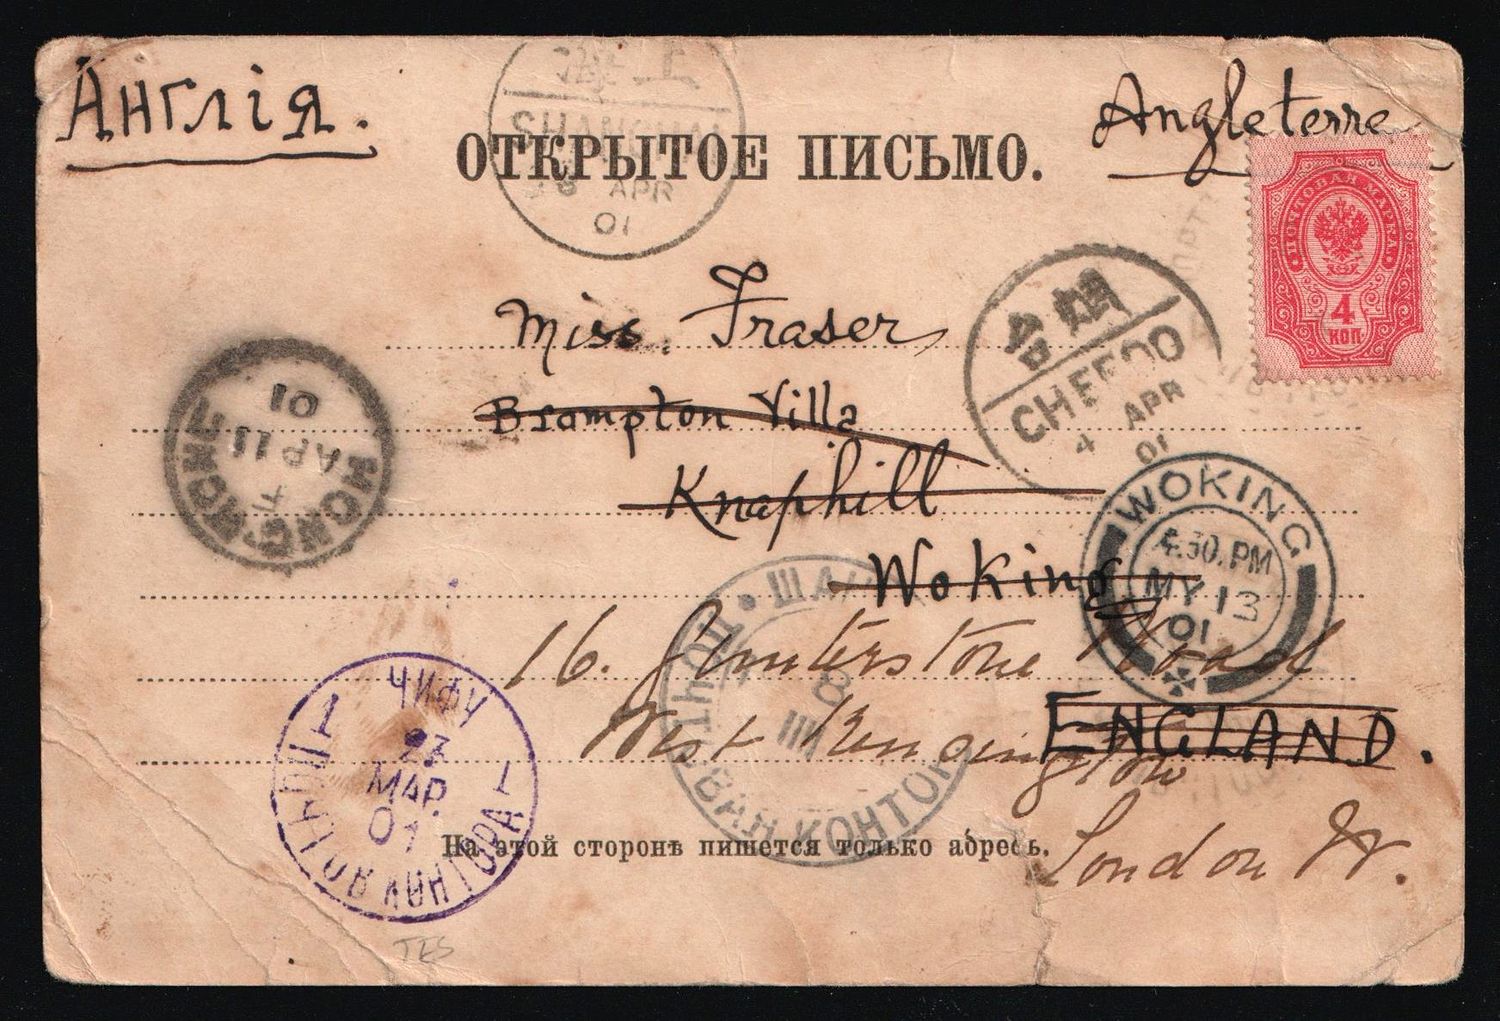 Англія.
Angleterre
ОТКРЫТОЕ ПИСЬМО.
上
SHANGHAI
APR
01
ПОЧТОВАЯ МАРКА
4
КОП
Miss. Fraser
Brampton Villa
Knaphill
Woking
ENGLAND.
16. Gunterstone Road
West Kensington
London W.
CHEFOO
4 APR
01
HONG KONG
F
AP 11
01
WOKING
4.30. PM
MY 13
01
ЧИФУ
23
МАР.
01
КОНТОРА
8
III
КОНТОР
На этой сторонѣ пишется только адресъ.
TES